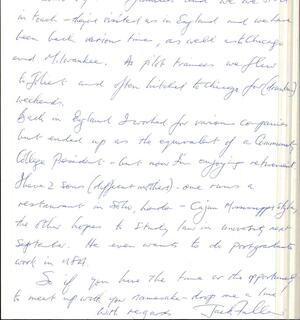 in touch - they've visited us in England and we have
been back various times, as well as to Chicago
and Milwaukee. As pilot trainees we flew
to Joliet and often hitched to Chicago for (drunken)
weekends.
Back in England I worked for various companies
but ended up as the equivalent of a Community
College President - but now I'm enjoying retirement
I have 2 sons (different mothers) - one runs a
restaurant in Soho, London - Cajun Mississippi style,
the other hopes to study law in university next
September. He even wants to do postgraduate
work in USA.
So if you have the time or the opportunity
to meet up with your namesake - drop me a line
With regards Jack